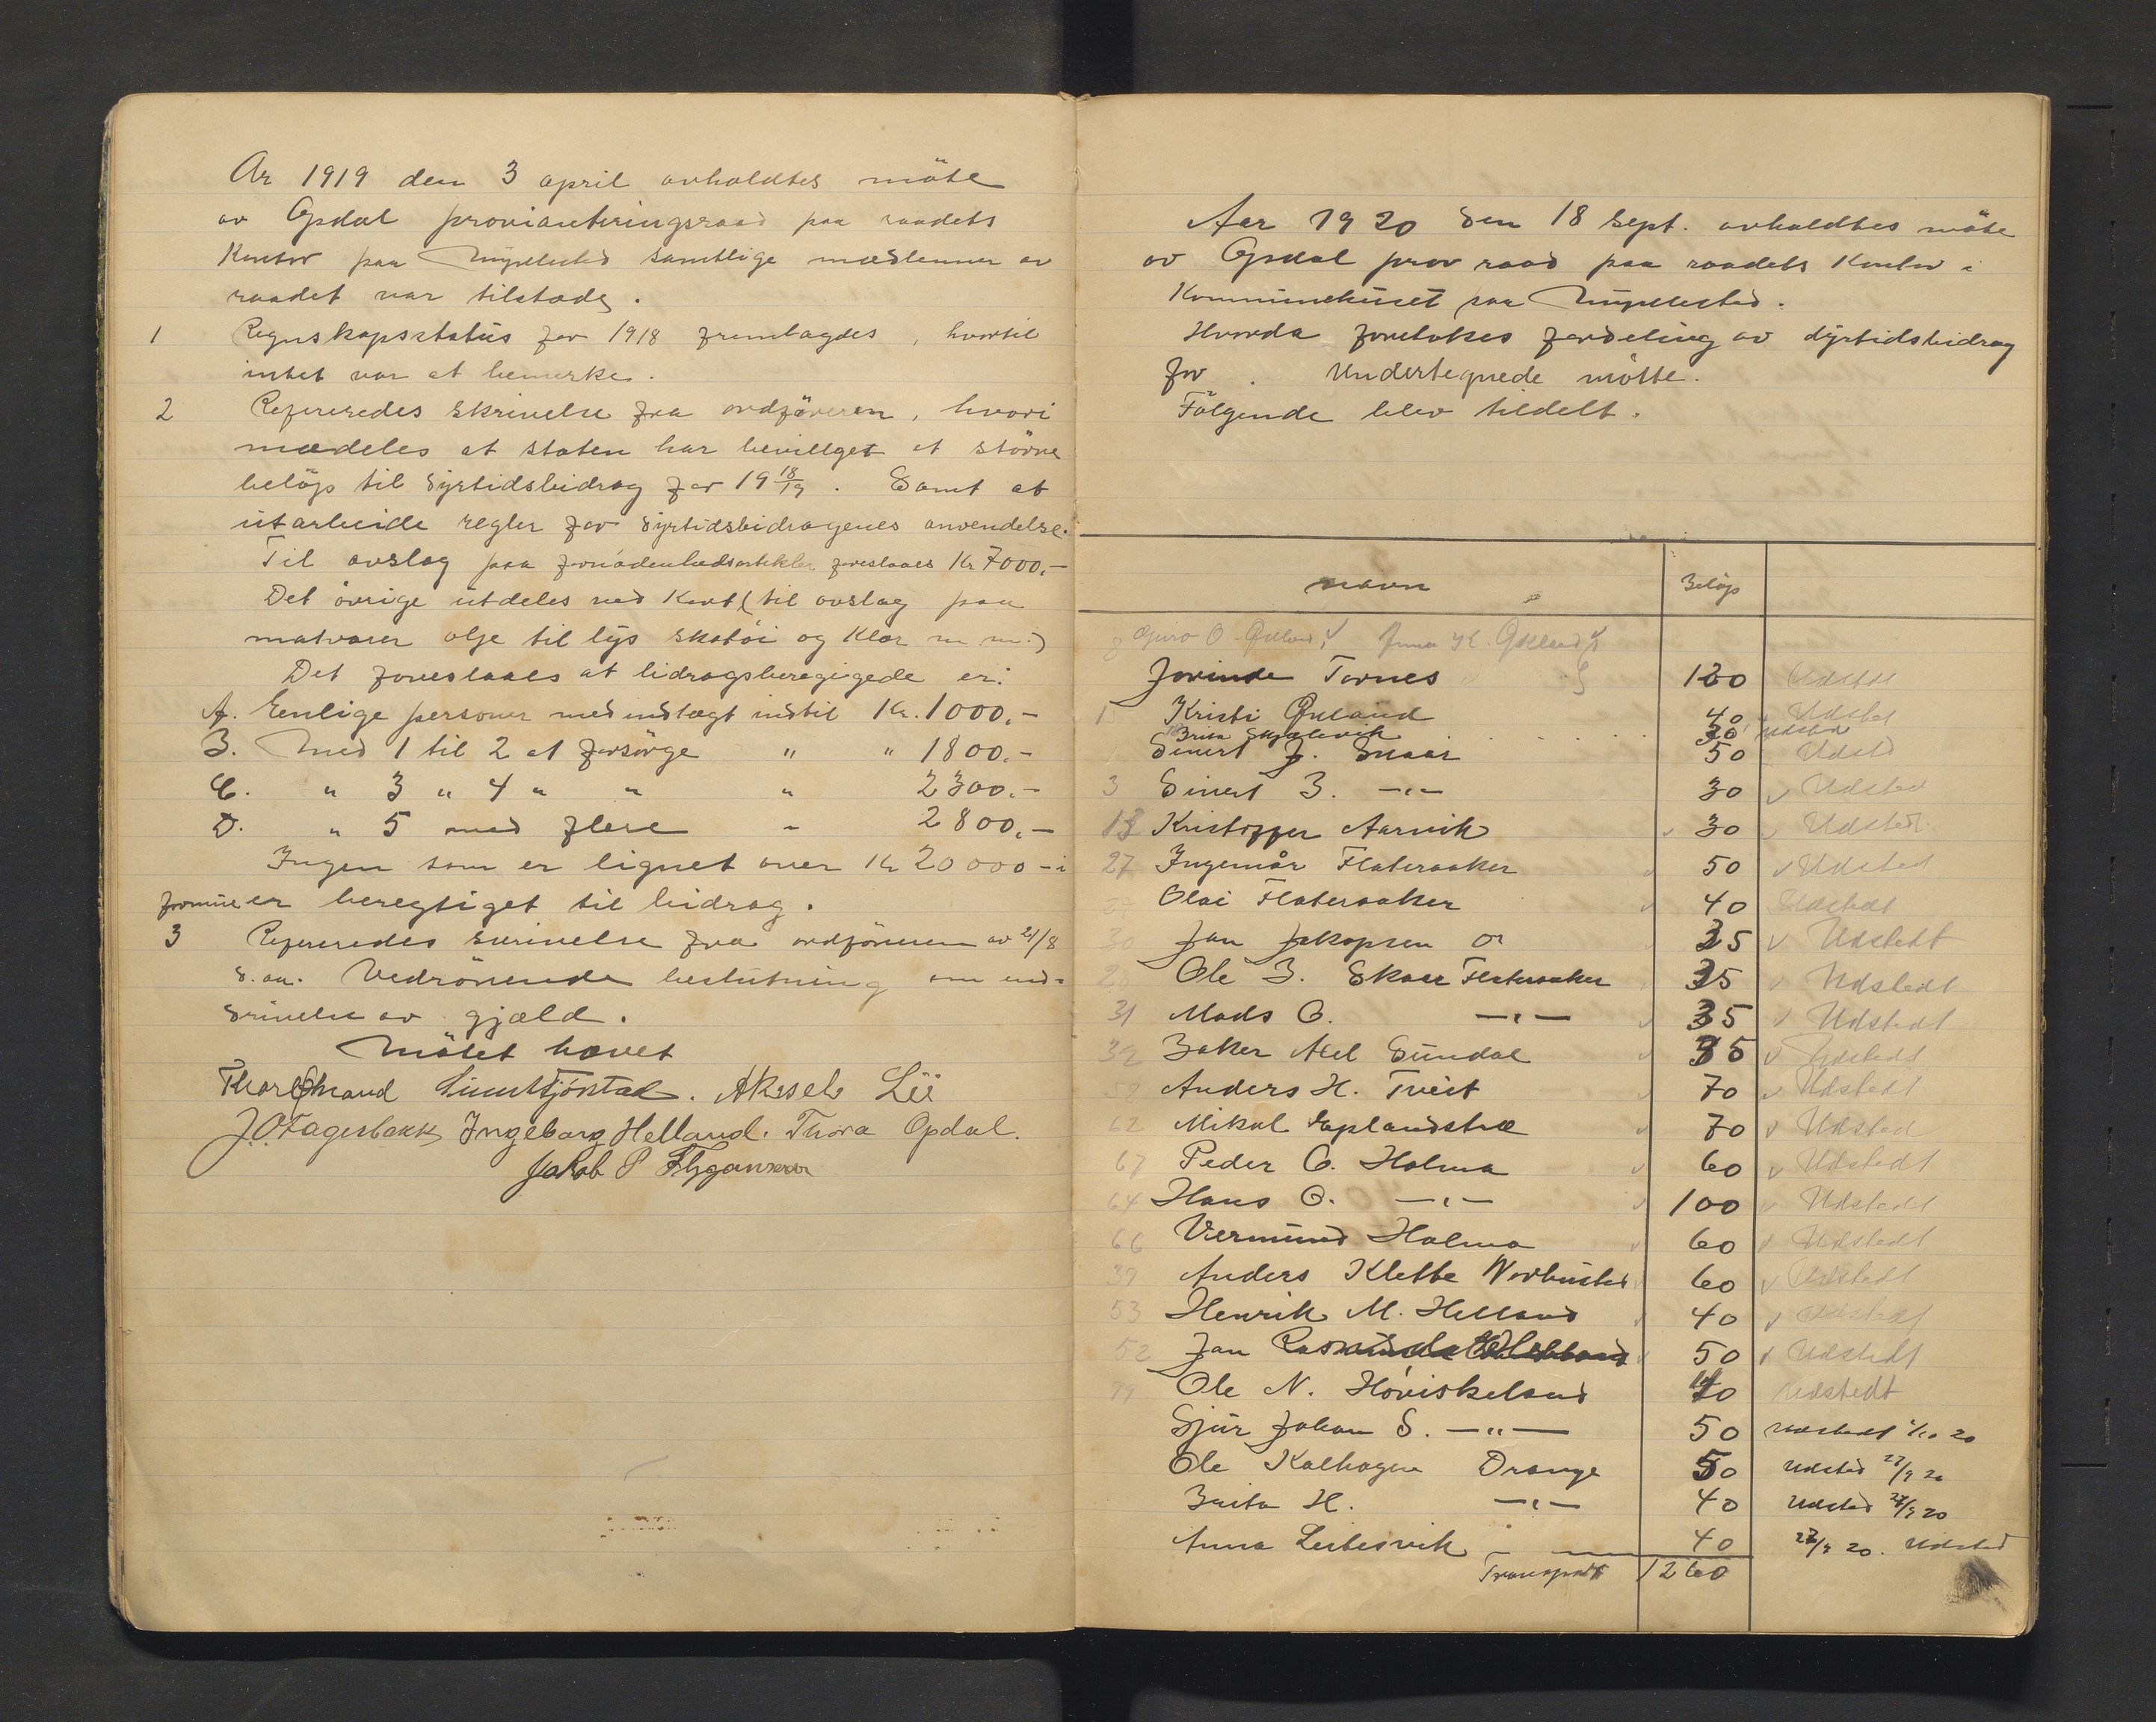 År 1919 den 3 april avholdtes möte
av Opdal provianteringsraad paa raadets
Kontor paa samtlige medlemmer av
raadet var tilstæde.
1 Regnskapsstatus for 1918 fremlagdes, hvortil
intet var at bemerke.
2 Refereredes skrivelse fra ordföreren, hvori
meddeles at staten har bevillget et större
belöp til dyrtidsbidrag for 19 18/19. Samt at
utarbeide regler for dyrtidsbidragenes anvendelse.
Til avslag paa fornödenhedsartikler foreslaaes Kr 7000,-
Det övrige utdeles ved Kort (til avslag paa
matvarer olje til lys skotöi og Klær m m.)
Det foreslaaes at bidragsberegtigede er:
A. Enlige personer med indtægt indtil Kr. 1000,-
B. Med 1 til 2 at forsörge " " 1800,-
C. " 3 " 4 " " " 2300,-
D. " 5 med flere " 2800,-
Ingen som er lignet over Kr 20000 - i
formue er beregtiget til bidrag.
3 Refereredes skrivelse fra ordföreren av 21/8
d. aa. Vedrörende beslutning om ind-
drivelse av gjæld.
Mötet hævet
Aksel Lie
J. O. Fagerbakk Ingeborg Helland. Thora Opdal.
Jakob P Flygansvær
Aar 1920 den 18 Sept. avholdtes möte
av Opdal prov raad paa raadets Kontor i
Kommunehuset paa
Hvorda foretokes fordeling av dyrtidsbidrag
for . Undertegnede mötte.
Fölgende blev tildelt.
Navn Belöp
Guro O. Økland Anna K. Økland
Jorinde Tornes 120 Udstedt
Kristi Økland 40 Udsted
Brita Skjelevik 30 Udsted
Sivert J. Snaar 50 Udsted
3 Sivert B. -"- 30 Udsted
13 Kristoffer Aarvik 30 Udsted
27 Ingemår Flateraaker 50 Udsted
Olai Flateraaker 40 Udstedt
30 Jan Jakopsen or 35 Udstedt
Ole B. Skaar Flateraaker 35 Udstedt
31 Mads O. -"- 35 Udstedt
32 Baker Axel Sundal Udstedt
58 Anders H. Tveit 70 Udstedt
62 Mikal 70 Udsted
67 Peder O. Holma 60 Udstedt
64 Hans O. -"- 100 Udstedt
66 Vermund Holma 60 Udstedt
39 Anders Klette Nordhusted 60 Udstedt
53 Henrik M. Helland 40 Udstedt
52 Jan 50 Udstedt
Ole N. Höviskeland Udstedt
Sjur Johan S. -"- 50 Udstedt 1/10 20
Ole Kalhagen Drange 50 Udsted 27/9 20
Brita H. -"- 40 Udsted 27/9 20
Anna Leitesvik 40 27/9 20. Udsted
Transport 1260